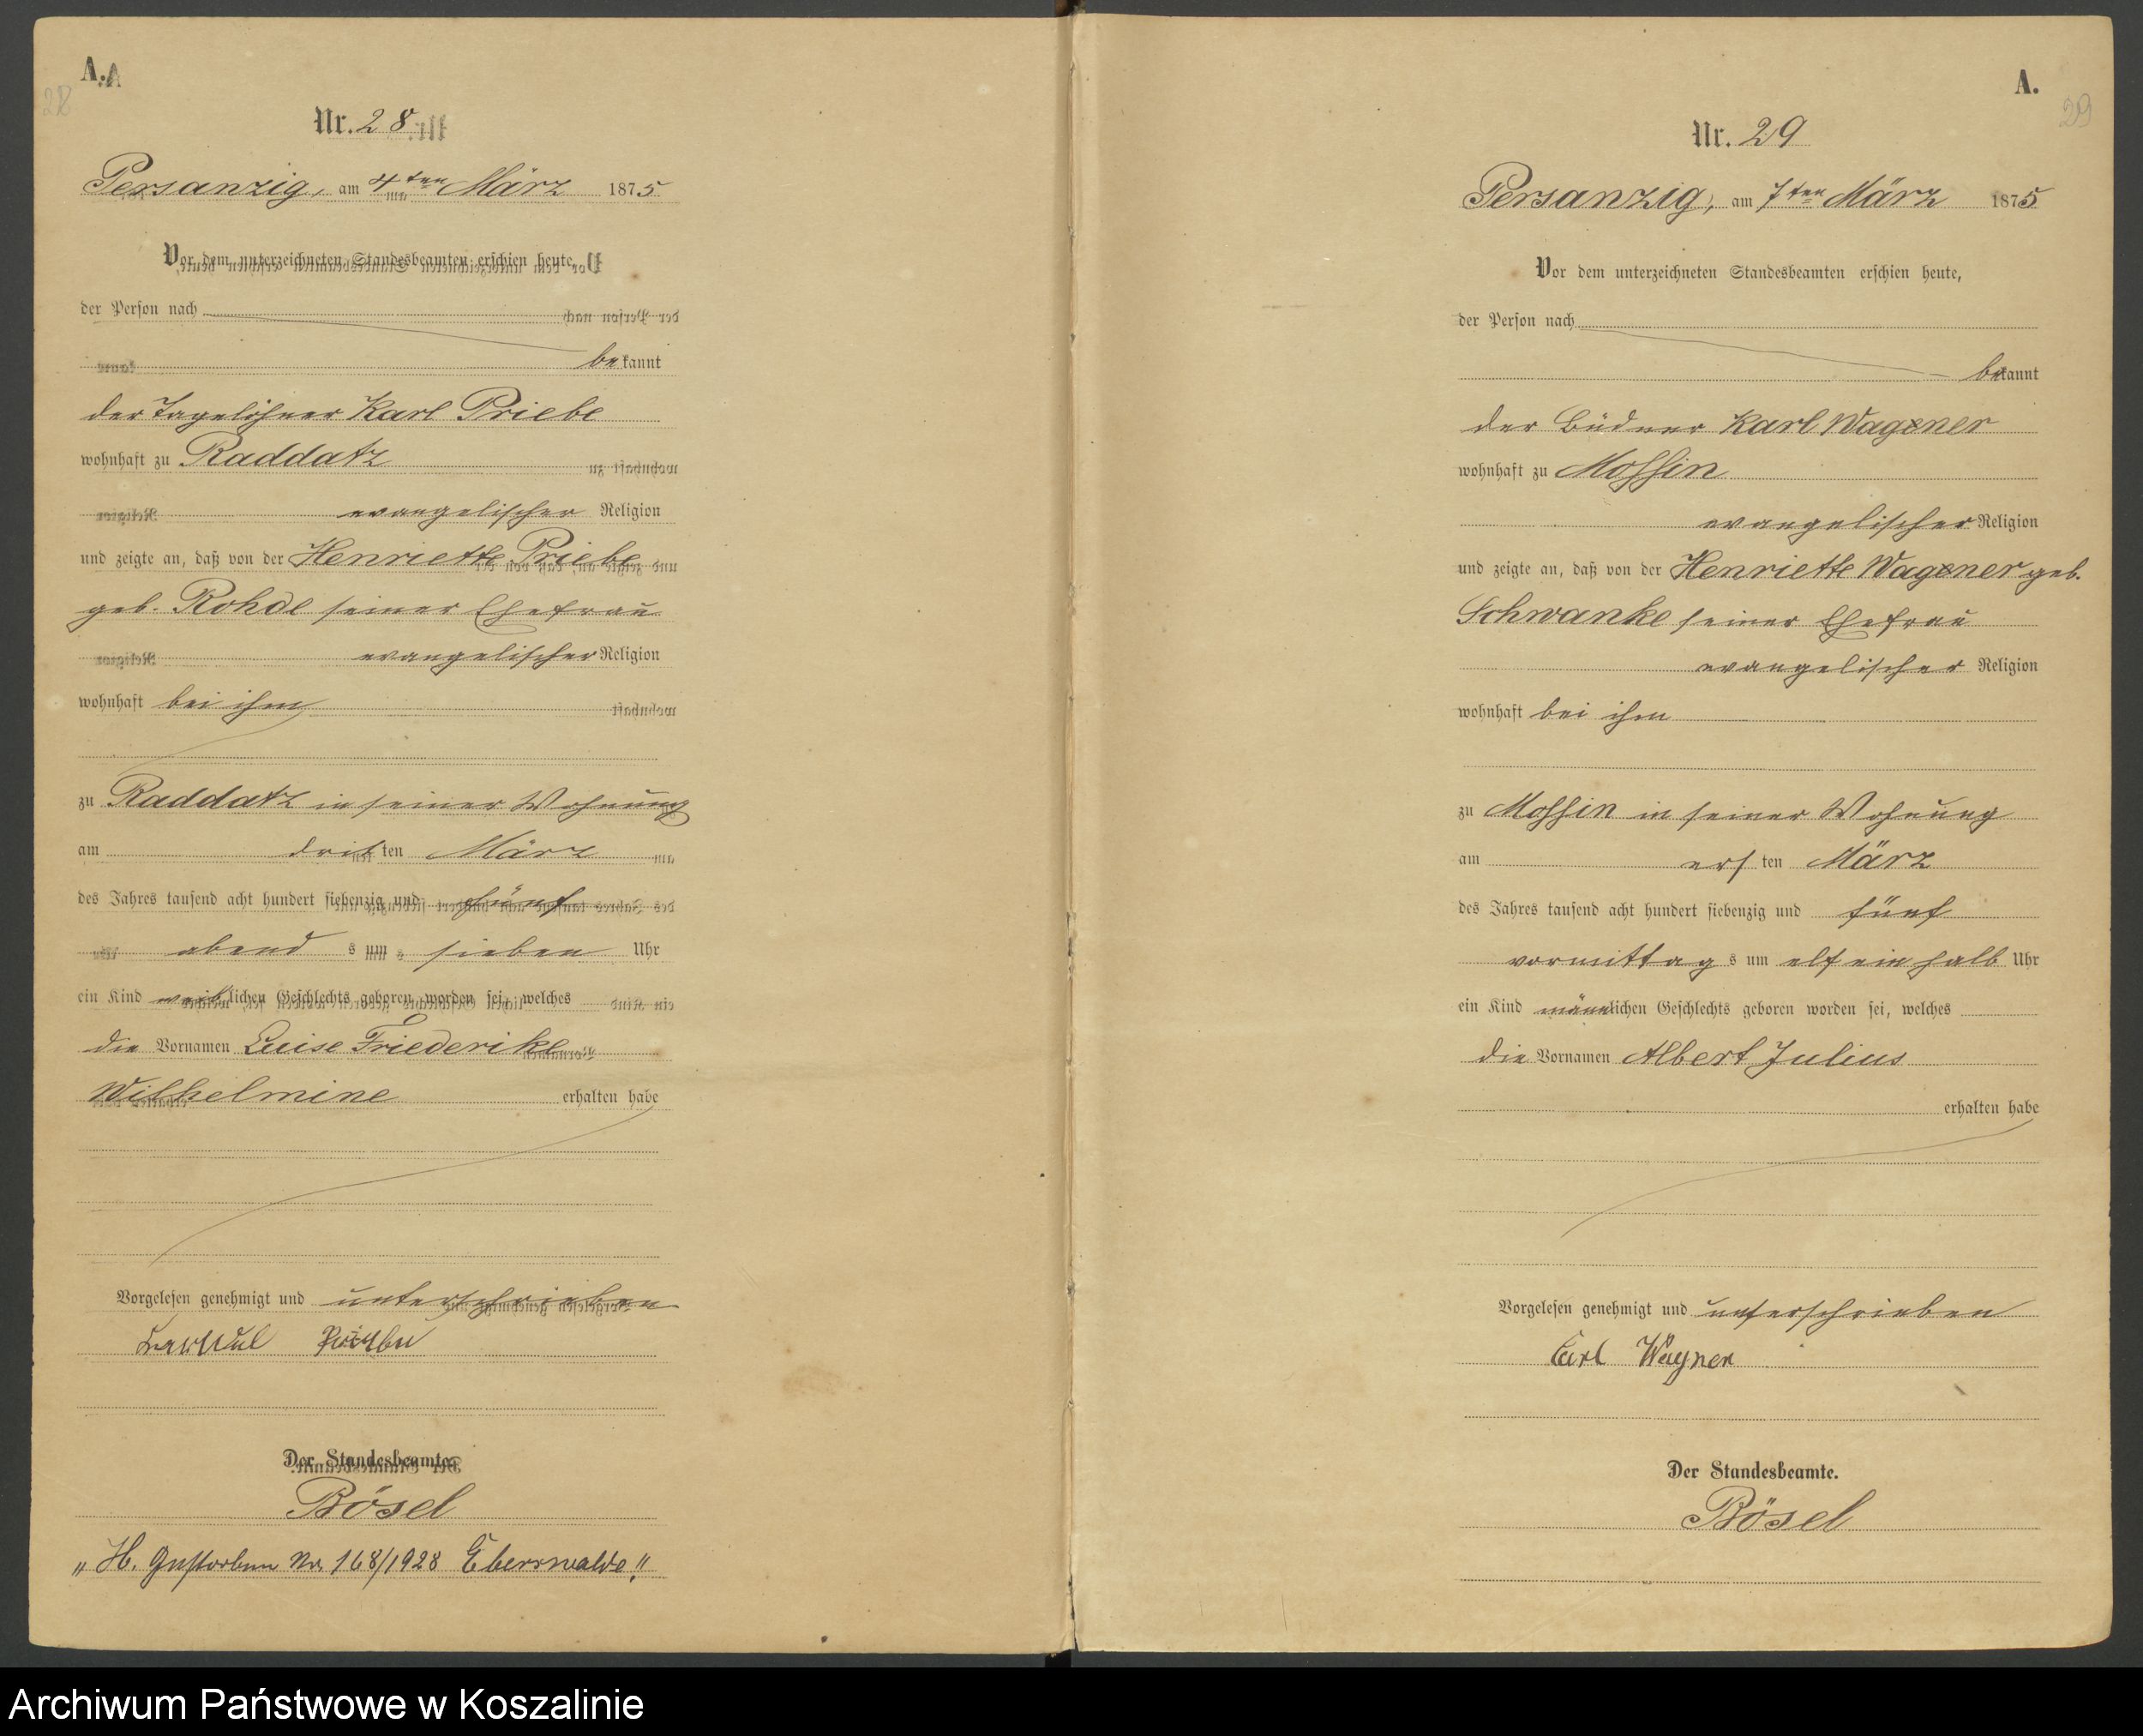 A.
28
Nr. 28
Persanzig, am 4ten März 1875
Vor dem unterzeichneten Standesbeamten erschien heute,
der Person nach
bekannt
der Tagelöhner Karl Priebe
wohnhaft zu Raddatz
evangelischer Religion
und zeigte an, daß von der Henriette Priebe
geb. Rohde seiner Ehefrau
evangelischer Religion
wohnhaft bei ihm
zu Raddatz in seiner Wohnung
am dritten März
des Jahres tausend acht hundert siebenzig und fünf
abends um sieben Uhr
ein Kind weiblichen Geschlechts geboren worden sei, welches
die Vornamen Luise Friederike
Wilhelmine erhalten habe
Vorgelesen genehmigt und unterschrieben
Der Standesbeamte.
Bösel
"H. Gestorben Nr. 168/1928 Eberswalde."
A.
29
Nr. 29
Persanzig, am 7ten März 1875
Vor dem unterzeichneten Standesbeamten erschien heute,
der Person nach
bekannt
der Büdner Karl Wagener
wohnhaft zu Mossin
evangelischer Religion
und zeigte an, daß von der Henriette Wagener geb.
Schwanke seiner Ehefrau
evangelischer Religion
wohnhaft bei ihm
zu Mossin in seiner Wohnung
am ersten März
des Jahres tausend acht hundert siebenzig und fünf
vormittags um elf ein halb Uhr
ein Kind männlichen Geschlechts geboren worden sei, welches
die Vornamen Albert Julius
erhalten habe
Vorgelesen genehmigt und unterschrieben
Carl Wagner
Der Standesbeamte.
Bösel
Archiwum Państwowe w Koszalinie